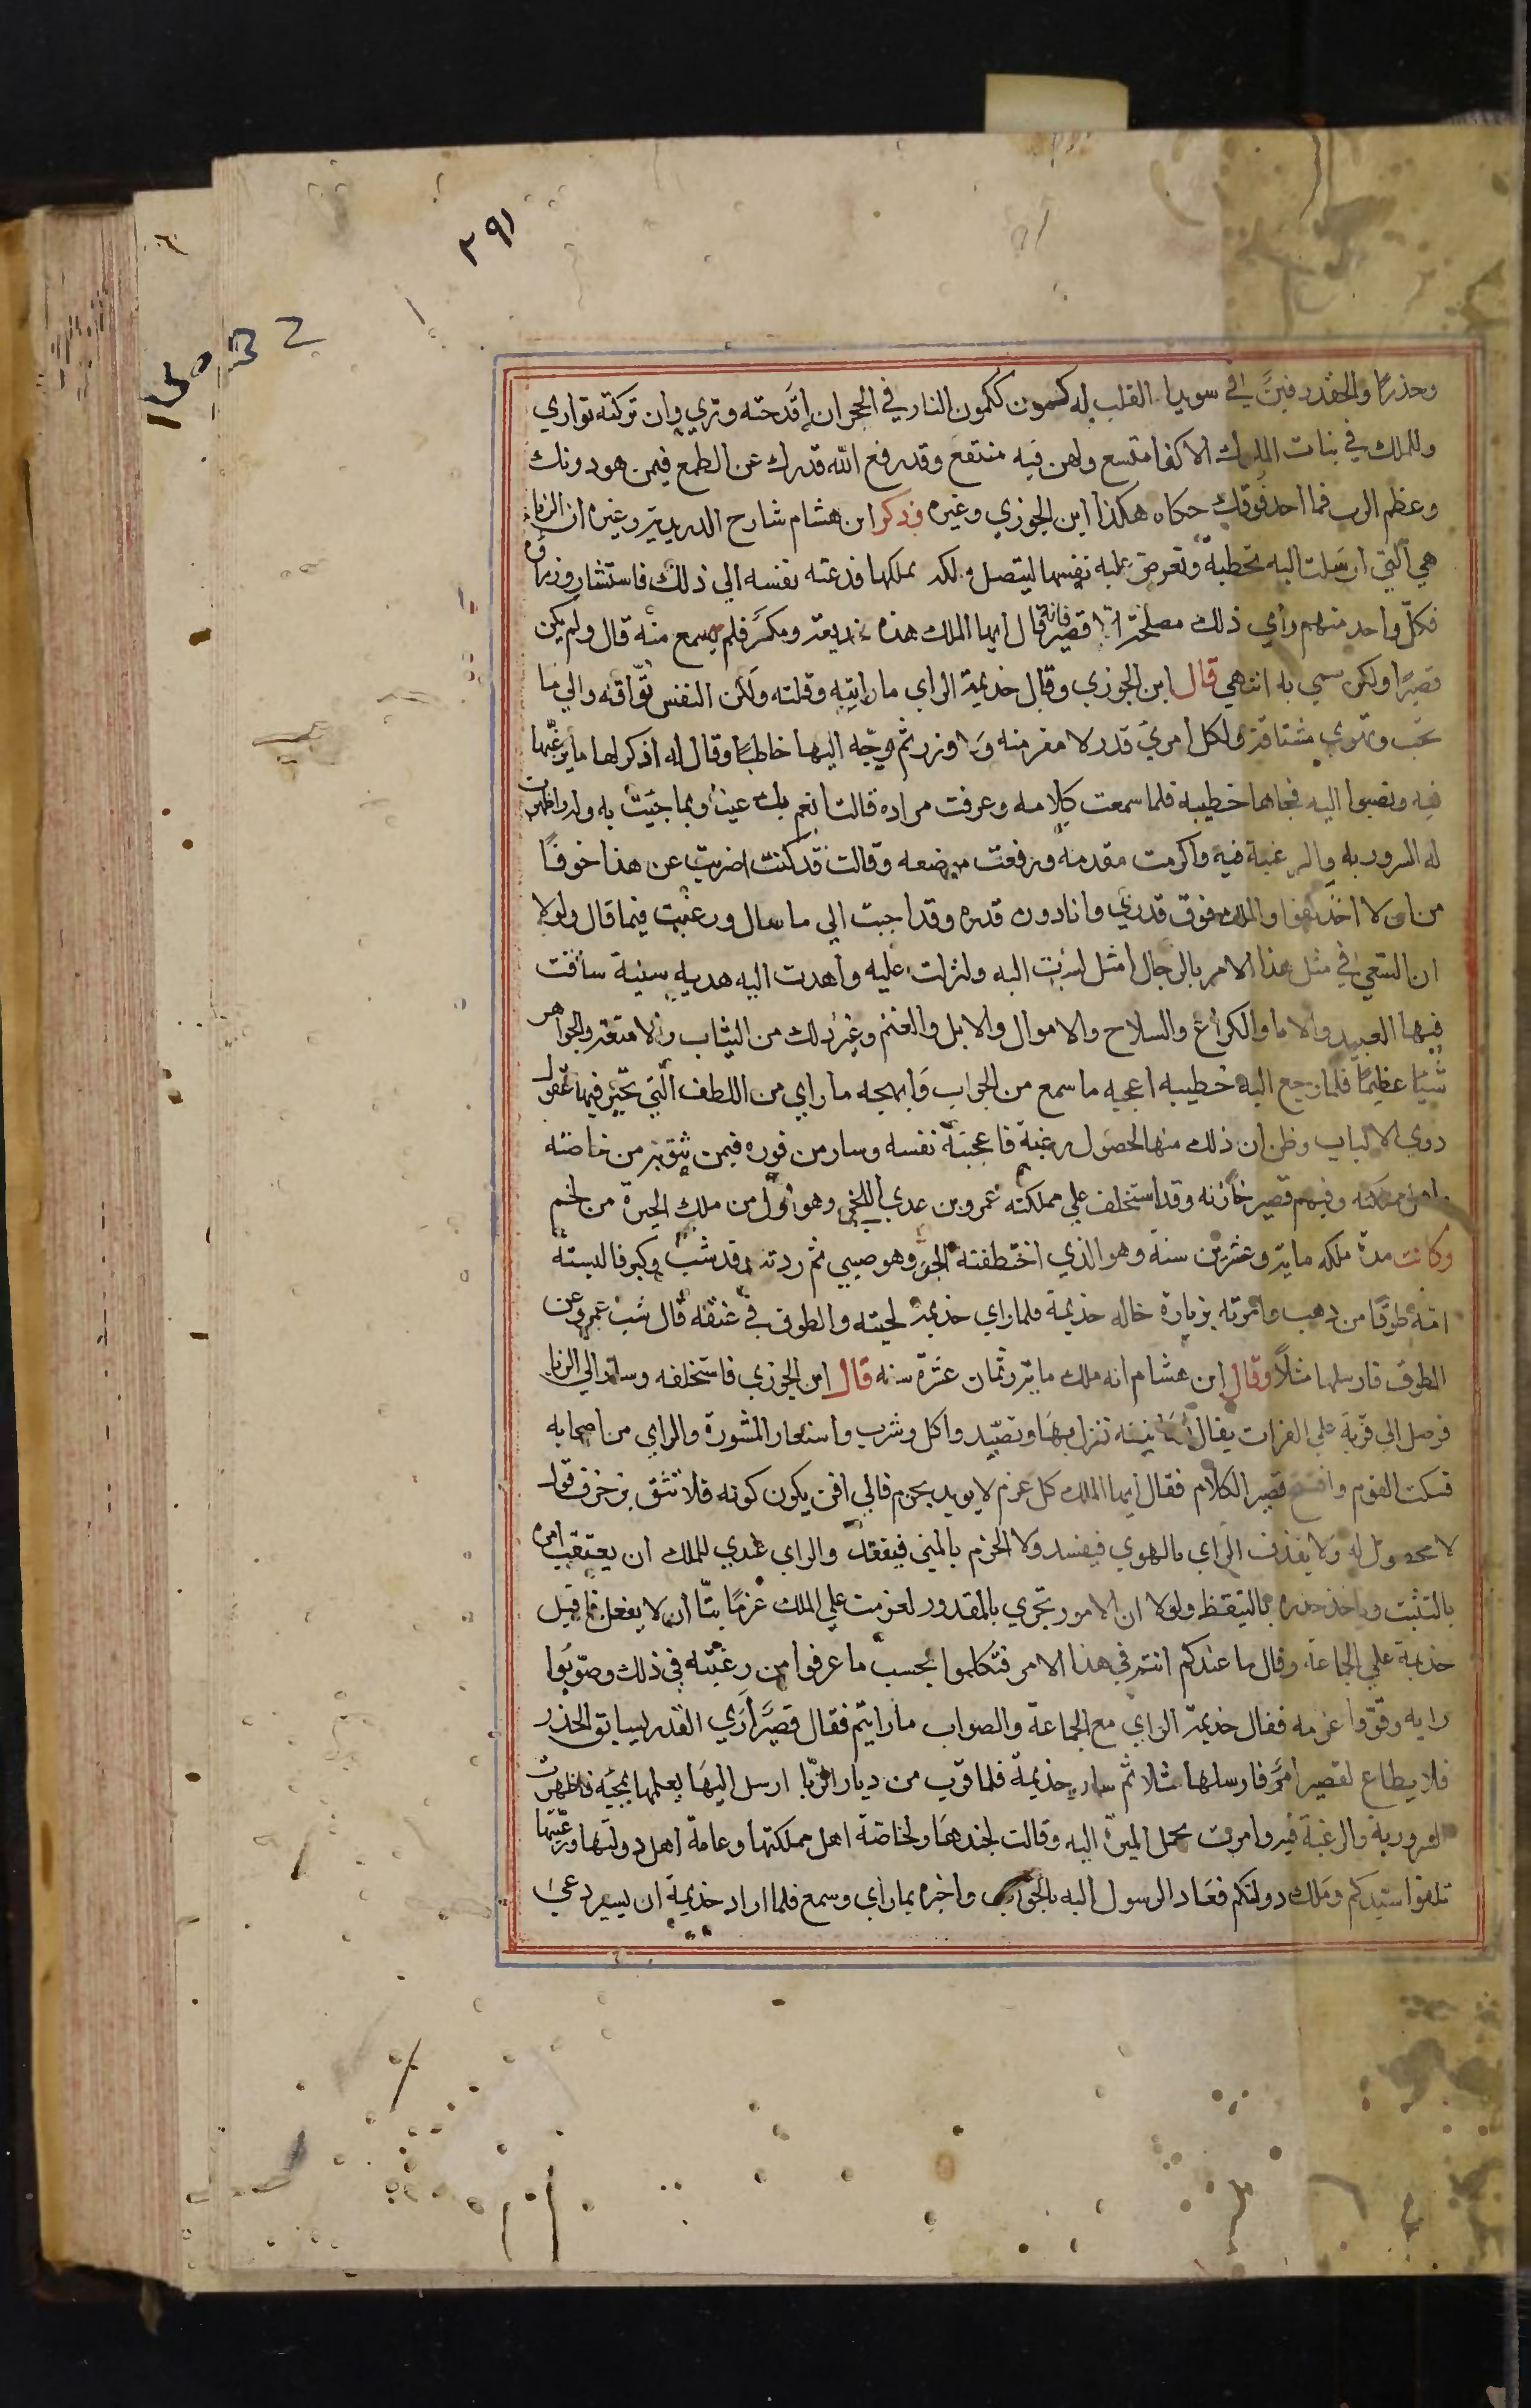 ٣٩١
وحذرًا والحقد دفين في سويدا القلب له كمون ككمون النار في الحجر ان اقدحته وتري وان تركته تواري
وللملك في بنات الملوك الاكفا متسع ولهن فيه منتفع وقد رفع الله قدرك عن الطمع فيمن هو دونك
وعظم الرب فما احد فوقك حكاه هكذا ابن الجوزي وغيره وذكر ابن هشام شارح الدريدية وغيره ان الزبا
هي التي ارسلت اليه تخطبه وتعرض عليه نفسها ليتصل ملكه بملكها فدعته نفسه الي ذلك فاستشار وزراه
فكل واحد منهم راي ذلك مصلحة الا قصير فانه قال ايها الملك هذه خديعة ومكر فلم يسمع منه قال ولم يكن
قصيرًا ولكن سمي به انتهي قال ابن الجوزي وقال جذيمة الراي ما رايتيه وقلته ولكن النفس تواقة والي ما
تحب وتهوي مشتاقة ولكل امري قدر لا مفر منه ولا وزر ثم وجه اليها خاطبًا وقال له اذكر لها ما يرغبها
فيه وتصبوا اليه فجاها خطيبه فلما سمعت كلامه وعرفت مراده قالت انعم بك عينًا وبما جيت به وله واظهرت
له السرور به والرغبة فيه واكرمت مقدمه ورفعت موضعه وقالت قد كنت اضربت عن هذا خوفًا
من ان لا اخذ كفوا والملك فوق قدري وانا دون قدره وقد اجبت الي ما سال ورغبت فيما قال ولولا
ان السعي في مثل هذا الامر بالرجال امثل لسرت اليه ولنزلت عليه واهدت اليه هدية سنية ساقت
فيها العبيد والاما والكراع والسلاح والاموال والابل والغنم وغير ذلك من الثياب والامتعة والجواهر
شيًا عظيمًا فلما رجع اليه خطيبه اعجبه ما سمع من الجواب وابهجه ما راي من اللطف التي تحير فيها عقول
ذوي الالباب وظن ان ذلك منها لحصول رغبة فاعجبته نفسه وسار من فوره فيمن يثق به من خاصته
واهل مملكته وفيهم قصير خازنه وقد استخلف علي مملكته عمرو بن عدي اللخمي وهو اول من ملك الحيرة من لخم
وكانت مدة ملكه ماية وعشرين سنة وهو الذي اختطفته الجن وهو صبي ثم ردته وقد شب وكبر فالبسته
امه طوقًا من ذهب وامرته بزيارة خاله جذيمة فلما راي جذيمة لحيته والطوق في عنقه قال شب عمرو عن
الطوق فارسلها مثلًا وقال ابن هشام انه ملك ماية وثمان عشرة سنه قال ابن الجوزي فاستخلفه وسار الي الزبا
فوصل الي قرية علي الفرات يقال نزل بها وتصيد واكل وشرب واستعار المشورة والراي من اصحابه
فسكت القوم وافتتح قصير الكلام فقال ايها الملك كل عزم لا يويد بحزم فالي افن يكون كونه فلا تثق بزخرف قول
لا محصول له ولا يقذف الراي بالهوي فيفسد ولا الحزم بالمني فيفقد والراي عندي للملك ان يعتقب امره
بالتثبت وياخذ حذره بالتيقظ ولولا ان الامور تجري بالمقدور لعزمت علي الملك عزمًا بتًا ان لا يفعل فاقبل
جذيمة علي الجماعة وقال ما عندكم انتم في هذا الامر فتكلموا بحسب ما عرفوا من رغبته في ذلك وصوبوا
رايه وقووا عزمه فقال جذيمة الراي مع الجماعة والصواب ما رايتم فقال قصير اري القدر يسابق الحذر
فلا يطاع لقصير امر فارسلها مثلا ثم سار جذيمة فلما قرب من ديار الزبا ارسل اليها يعلمها بمجيه فاظهرت
السرور به والرغبة فيه وامرت بحمل الميرة اليه وقالت لجندها ولخاصة اهل مملكتها وعامة اهل دولتها ورعيتها
تلقوا سيدكم وملك دولتكم فعاد الرسول اليه بالجواب واخبره بما راي وسمع فلما اراد جذيمة ان يسير دعي